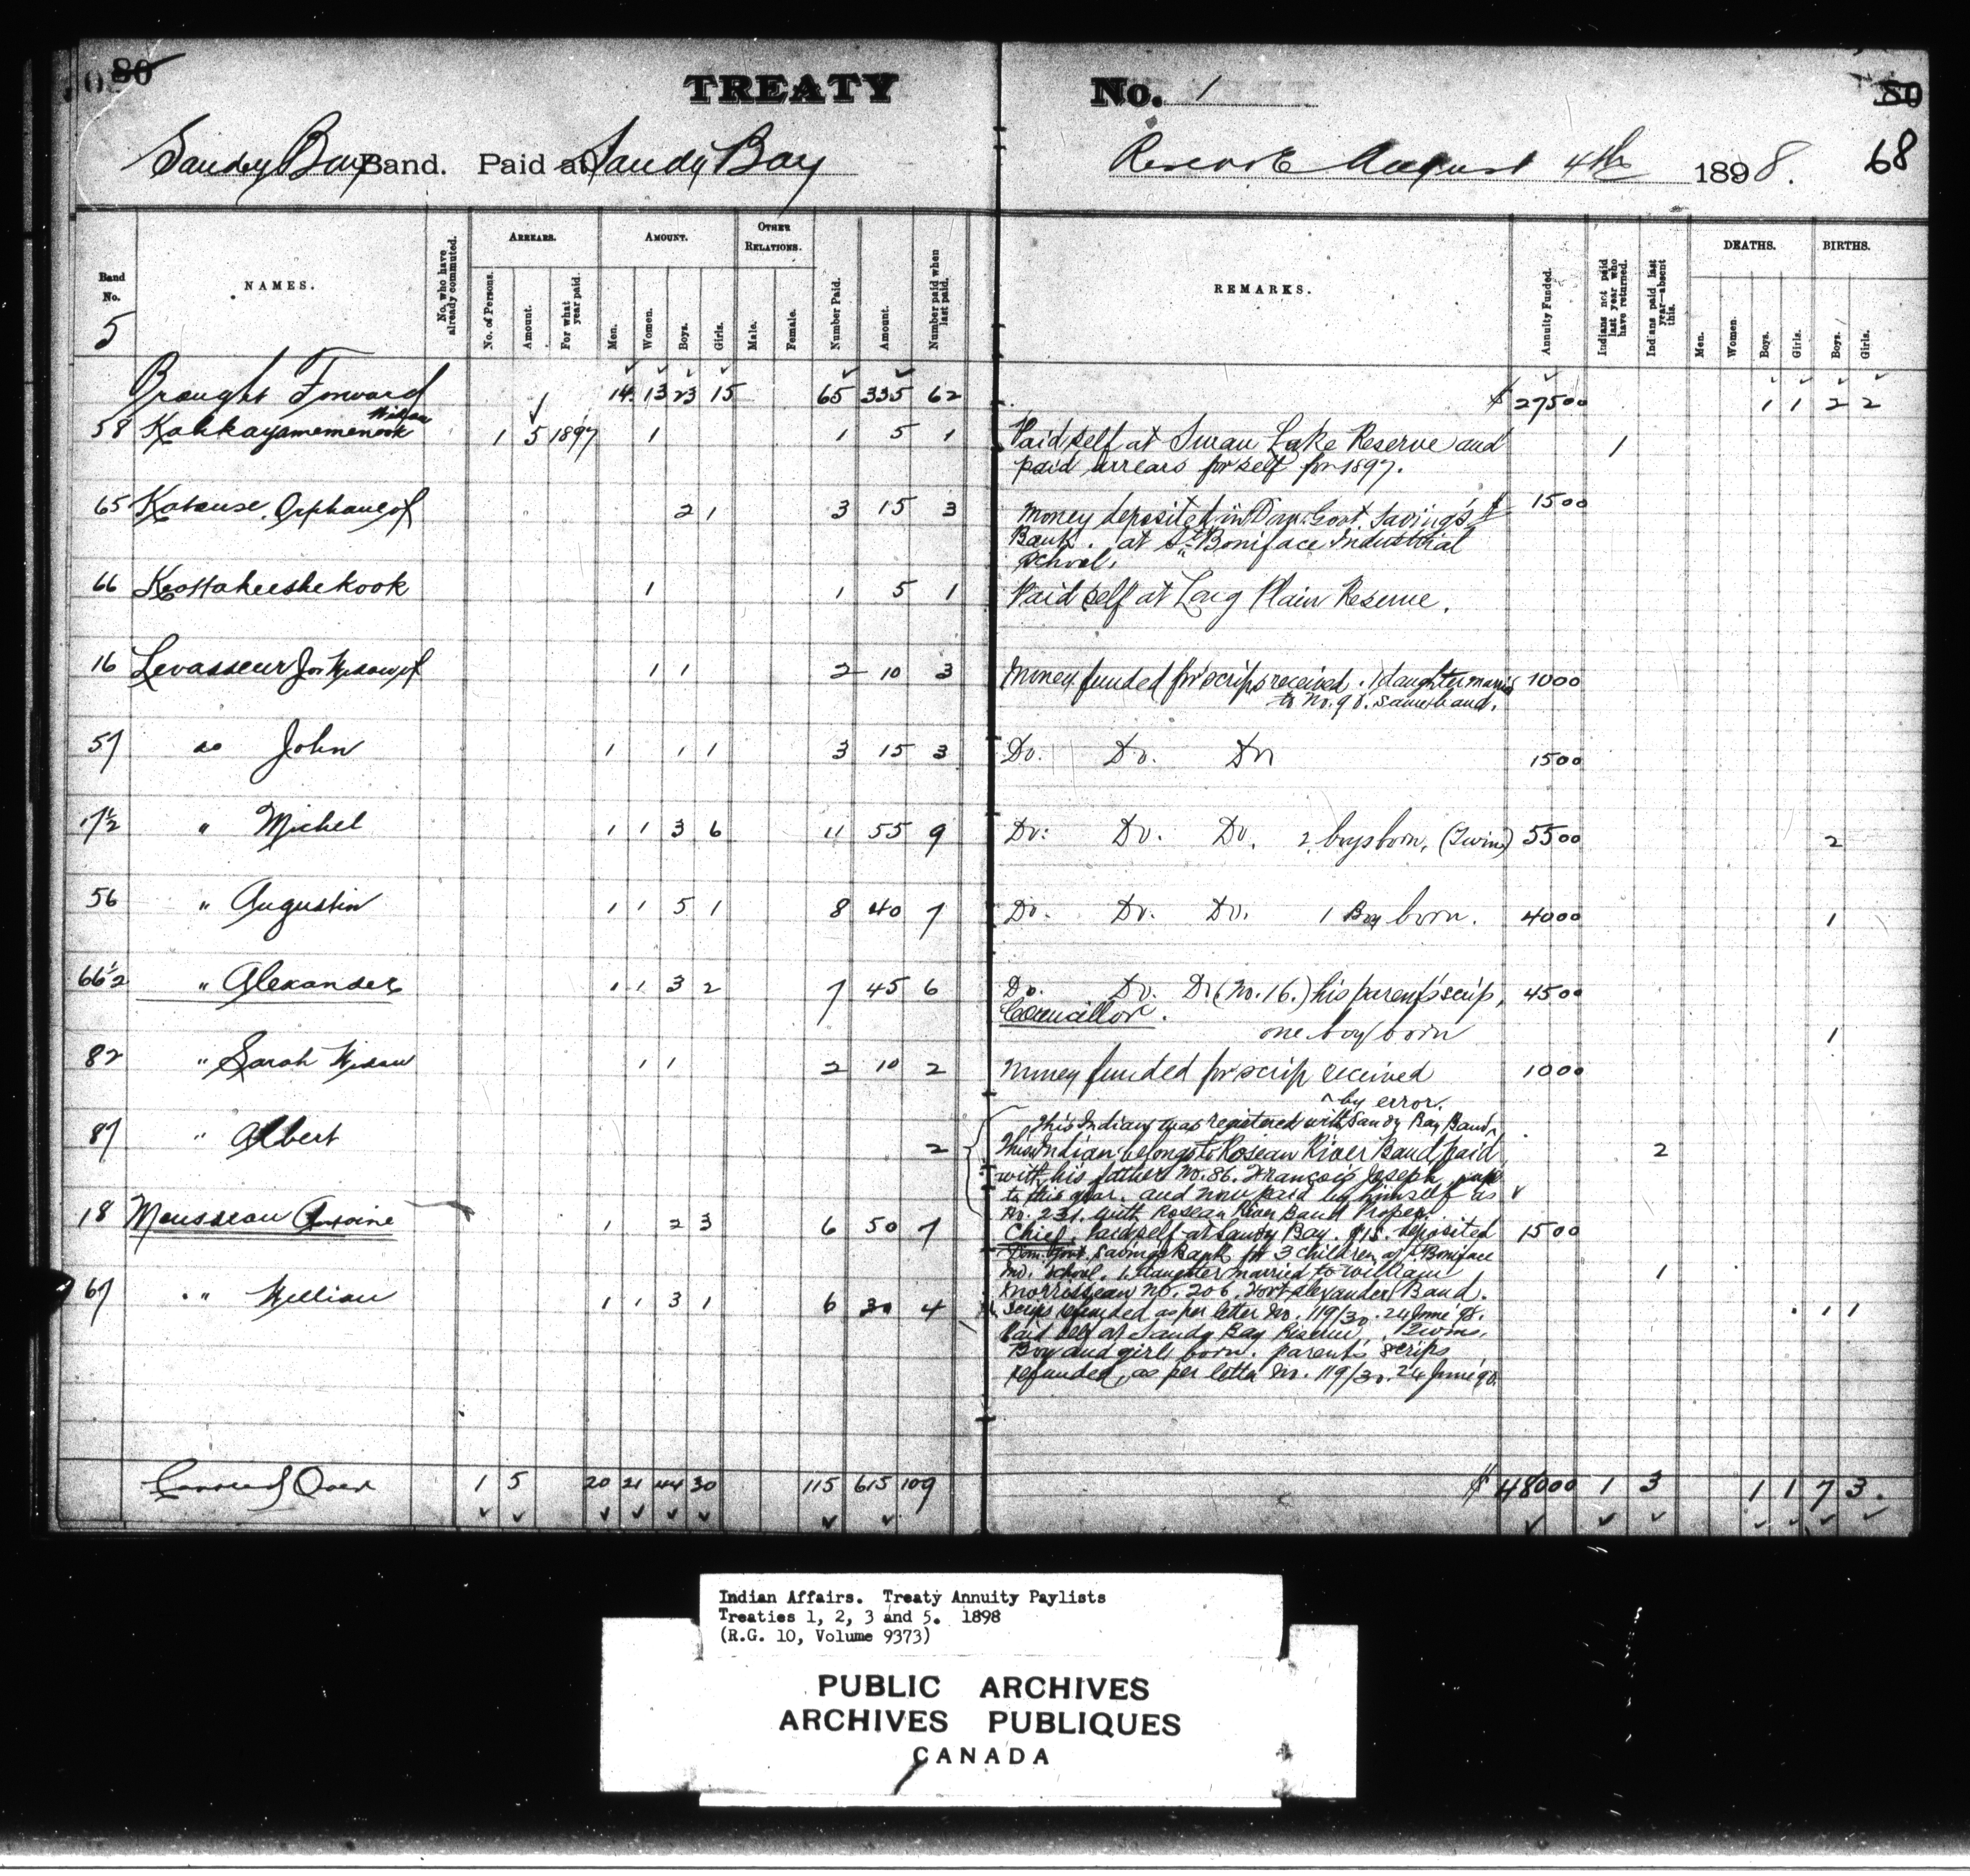 80 TREATY No. 1 80
Sandy Bay Band. Paid at Sandy Bay Reserve August 4th 1898. 68
Band No. 5
NAMES.
No. who have already commuted.
ARREARS.
No. of Persons. Amount. For what year paid.
AMOUNT.
Men. Women. Boys. Girls.
OTHER RELATIONS.
Male. Female.
Number Paid. Amount. Number paid when last paid.
REMARKS.
Annuity Funded.
Indians not paid last year who have returned.
Indians paid last year—absent this.
DEATHS.
Men. Women. Boys. Girls.
BIRTHS.
Boys. Girls.
Brought Forward 14 13 23 15 65 335 62 $ 27500 1 1 2 2
58 Kahkayamemenook Widow 1 5 1897 1 1 5 1 Paid self at Swan Lake Reserve and 1
paid arrears for self for 1897.
65 Katouse, Orphans of 2 1 3 15 3 Money deposited in Dom. Govt. Savings 1500
Bank. at St. Boniface Industrial
School.
66 Keottaheeshekook 1 1 5 1 Paid self at Long Plain Reserve.
16 Levasseur Jos Widow of 1 1 2 10 3 Money funded for scrips received. 1 daughter married 1000
to No. 90. same band.
57 do John 1 1 1 3 15 3 Do. Do. Do 1500
17½ " Michel 1 1 3 6 11 55 9 Do. Do. Do. 2 boys born, (Twins) 5500 2
56 " Augustin 1 1 5 1 8 40 7 Do. Do. Do. 1 Boy born. 4000 1
66½ " Alexander 1 1 3 2 7 45 6 Do. Do. Do (No. 16.) his parent's scrip, 4500
Councillor.
one boy born 1
82 " Sarah Widow 1 1 2 10 2 Money funded for scrip received 1000
^ by error.
This Indian was registered with Sandy Bay Band ^
87 " Albert 2 This Indian belongs to Rosean River Band, paid 2
with his father No. 86. Francois Joseph, up
to this year. and now paid by himself as
No. 231. with Rosean River Band Proper.
18 Mousseau Antoine 1 2 3 6 50 7 Chief. Paid self at Sandy Bay. $15. deposited 1500
Dom. Govt. Savings Bank for 3 children at St. Boniface
Ind. School. 1 daughter married to William 1
Morrisseau No. 206. Fort Alexander Band.
67 " William 1 1 3 1 6 30 4 Scrip refunded as per letter No. 119/30. 24 June 98. 1 1
Paid self at Sandy Bay Reserve, Twins,
Boy and girl born. parent's scrips
refunded, as per letter No. 119/30. 24 June 98.
Carried Over 1 5 20 21 44 30 115 615 109 $ 48000 1 3 1 1 7 3.
Indian Affairs. Treaty Annuity Paylists
Treaties 1, 2, 3 and 5. 1898
(R.G. 10, Volume 9373)
PUBLIC ARCHIVES
ARCHIVES PUBLIQUES
CANADA